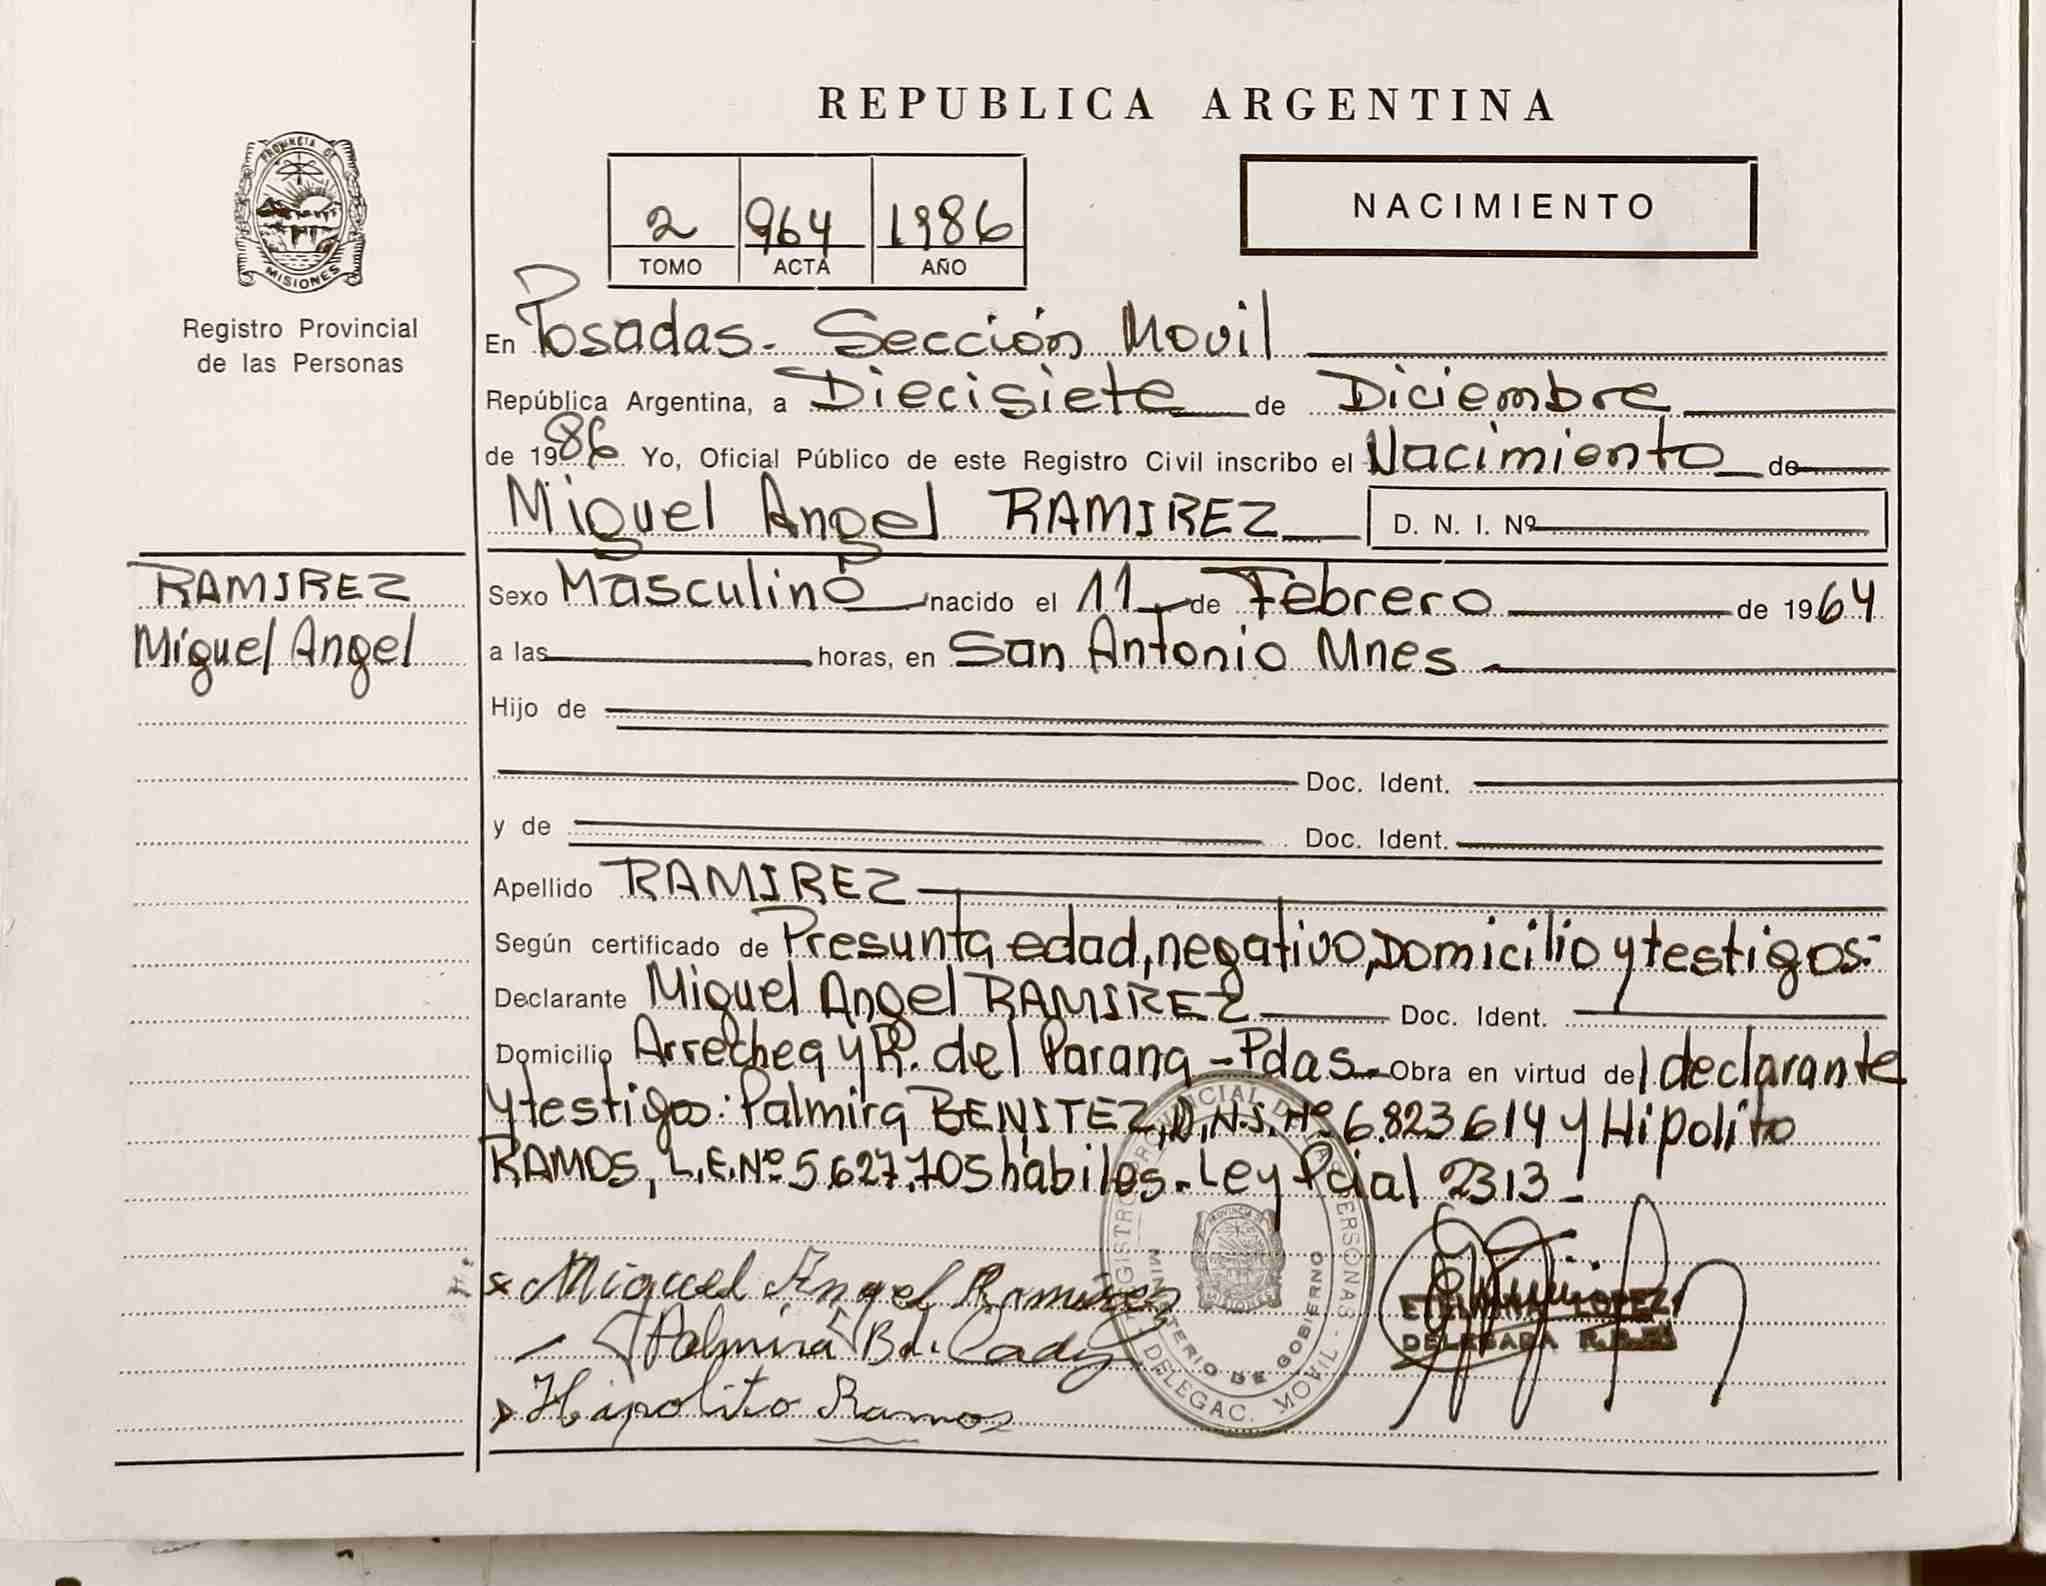 REPUBLICA ARGENTINA
PROVINCIA DE MISIONES
Registro Provincial
de las Personas
2 964 1986
TOMO ACTA AÑO
NACIMIENTO
En Posadas. Sección Movil
República Argentina, a Diecisiete de Diciembre
de 1986 Yo, Oficial Público de este Registro Civil inscribo el Nacimiento de
Miguel Angel RAMIREZ D. N. I. Nº
RAMIREZ
Miguel Angel
Sexo Masculino nacido el 11 de Febrero de 1964
a las horas, en San Antonio Mnes
Hijo de
Doc. Ident.
y de Doc. Ident.
Apellido RAMIREZ
Según certificado de Presunta edad, negativo, Domicilio y testigos:
Declarante Miguel Angel RAMIREZ Doc. Ident.
Domicilio Arrechea y R. del Parana - Pdas. Obra en virtud del declarante
y testigos: Palmira BENITEZ, D.N.I. Nº 6.823.614 y Hipolito
RAMOS, L.E. Nº 5.627.705 hábiles. Ley Pcial 2313 -
Miguel Angel Ramirez
Palmira B de
Hipolito Ramos
REGISTRO PROVINCIAL DE LAS PERSONAS - DELEGAC. MOVIL -
MINISTERIO DE GOBIERNO
LOPEZ
DELEGADA R.P.P.